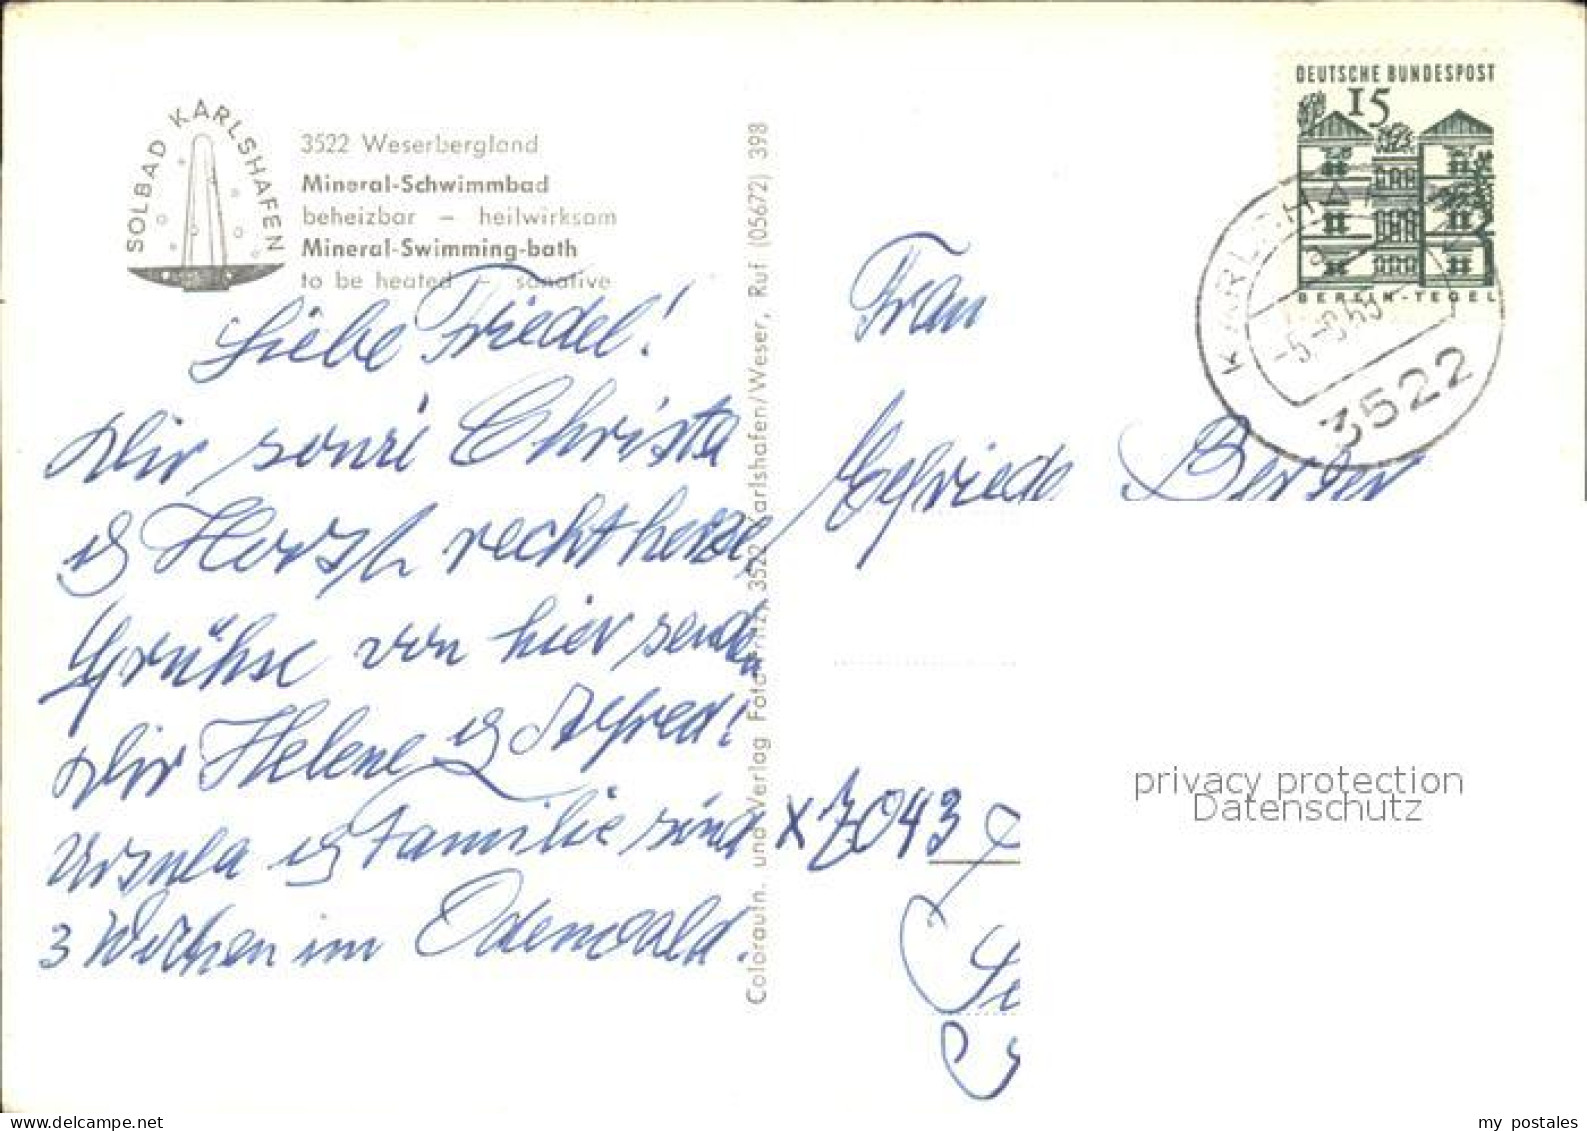 SOLBAD KARLSHAFEN
3522 Weserbergland
Mineral-Schwimmbad
beheizbar – heilwirksam
Mineral-Swimming-bath
to be heated – sanative
Liebe Friedel!
Dir sowie Christa
& Horst recht herzl.
Grühse von hier senden
Dir Helene & Alfred!
Ursula & Familie sind
3 Wochen im Odenwald.
Coloraufn. und Verlag Foto-Fritz, 3522 Karlshafen/Weser, Ruf (05672) 398
DEUTSCHE BUNDESPOST
15
BERLIN-TEGEL
KARLSHAFEN
3522
Frau
Elfriede
X 7043
privacy protection
Datenschutz
delcampe.net
my_postales